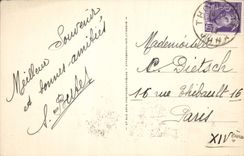 Meilleur Souvenir
et bonnes amitiés
Mademoiselle
Dietsch
16 rue Thibault 16
Paris
XIVe